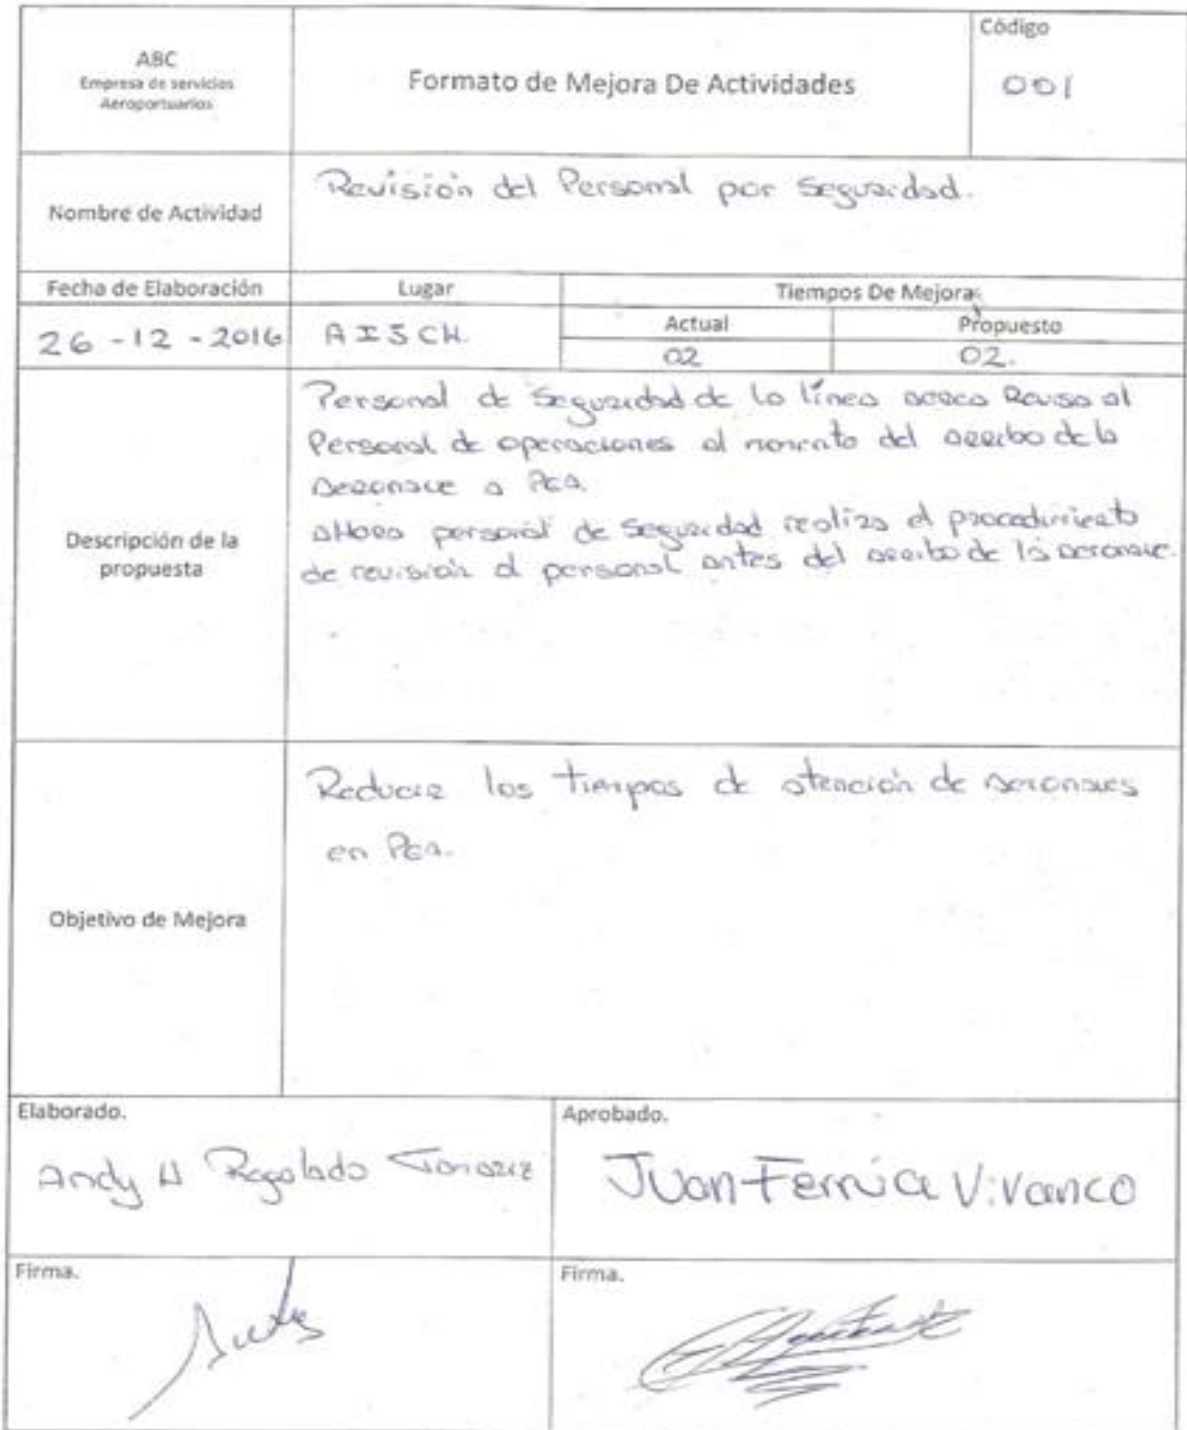 ABC
Empresa de servicios
Aeroportuarios
Formato de Mejora De Actividades
Código
001
Nombre de Actividad
Revisión del Personal por Seguridad.
Fecha de Elaboración
Lugar
Tiempos De Mejora
Actual
Propuesto
26-12-2016
AISCH.
02
02.
Descripción de la
propuesta
Personal de Seguridad de la línea aerea Revisa al
Personal de operaciones al momento del arribo de la
aeronave a PEA.
Ahora personal de Seguridad realiza el procedimiento
de revisión al personal antes del arribo de la aeronave.
Objetivo de Mejora
Reducir los tiempos de atención de aeronaves
en PEA.
Elaborado.
Andy H Regalado
Aprobado.
Juan Vivanco
Firma.
Firma.